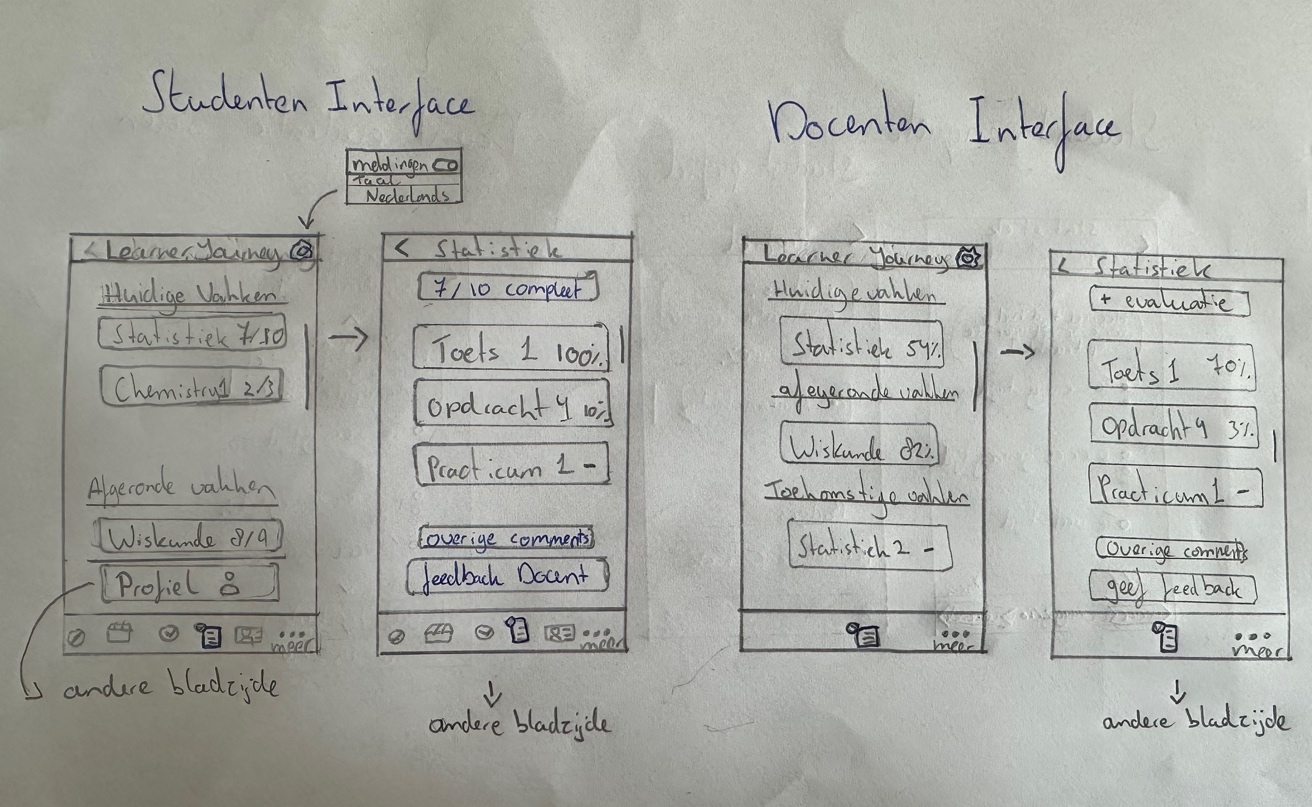 Studenten Interface
meldingen
Taal
Nederlands
< Learner Journey
Huidige Vakken
Statistiek 7/10
Chemistry1 2/3
Afgeronde vakken
Wiskunde 8/9
Profiel
meer
andere bladzijde
< Statistiek
7/10 compleet
Toets 1 100%
Opdracht 4 10%
Practicum 1 -
overige comments
feedback Docent
meer
andere bladzijde
Docenten Interface
Learner Journey
Huidige vakken
Statistiek 54%
afgeronde vakken
Wiskunde 82%
Toekomstige vakken
Statistiek 2 -
meer
< Statistiek
+ evaluatie
Toets 1 70%
Opdracht 4 3%
Practicum 1 -
overige comments
geef feedback
meer
andere bladzijde